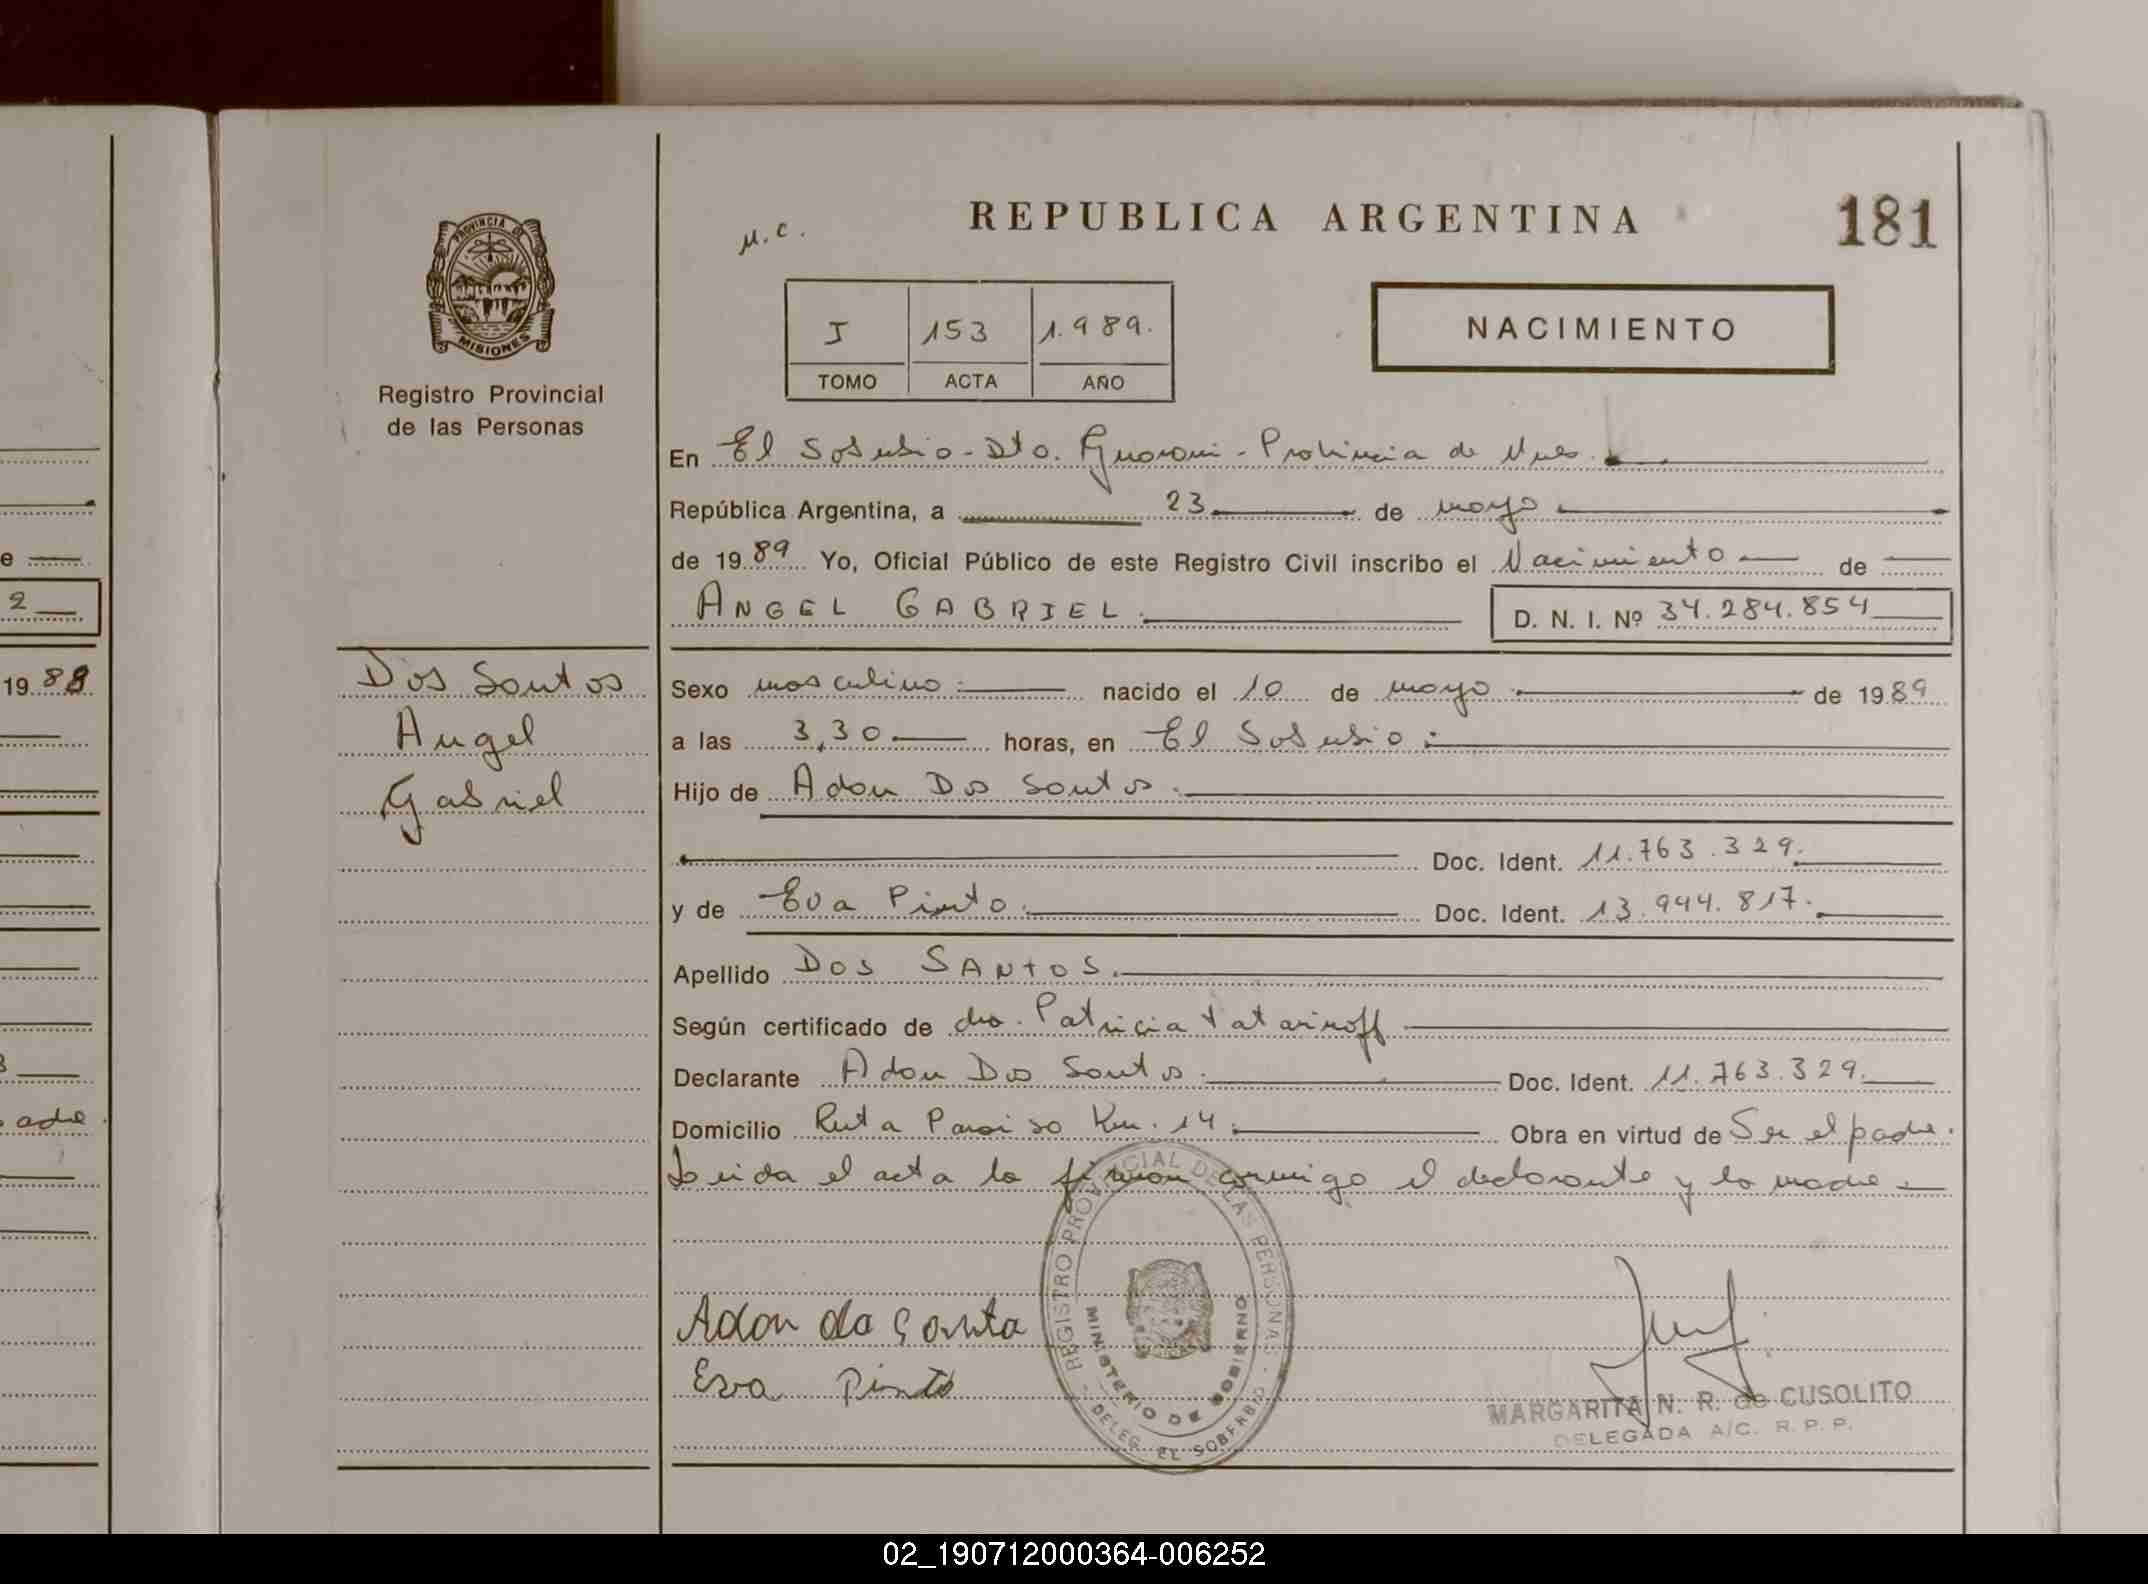 181
REPUBLICA ARGENTINA
M.C.
PROVINCIA DE
MISIONES
Registro Provincial
de las Personas
I 153 1.989.
TOMO ACTA AÑO
NACIMIENTO
En El Soberbio - Dto. Guarani - Provincia de Mnes.
República Argentina, a 23 de mayo
de 1989 Yo, Oficial Público de este Registro Civil inscribo el Nacimiento de
ANGEL GABRIEL. D. N. I. Nº 34.284.854
Dos Santos
Angel
Gabriel
Sexo masculino nacido el 10 de mayo de 1989
a las 3,30 horas, en El Soberbio
Hijo de Adon Dos Santos.
Doc. Ident. 11.763.329.
y de Eva Pinto. Doc. Ident. 13.944.817.
Apellido DOS SANTOS.
Según certificado de dra. Patricia Tatarinoff
Declarante Adon Dos Santos. Doc. Ident. 11.763.329.
Domicilio Ruta Paraiso Km. 14. Obra en virtud de Ser el padre.
Leida el acta la firman conmigo el declarante y la madre
REGISTRO PROVINCIAL DE LAS PERSONAS
MINISTERIO DE GOBIERNO
DELEG. EL SOBERBIO
Adon da
Eva Pinto
MARGARITA N. R. de CUSOLITO
DELEGADA A/C. R. P. P.
e
2
1988
3
adre.
02_190712000364-006252